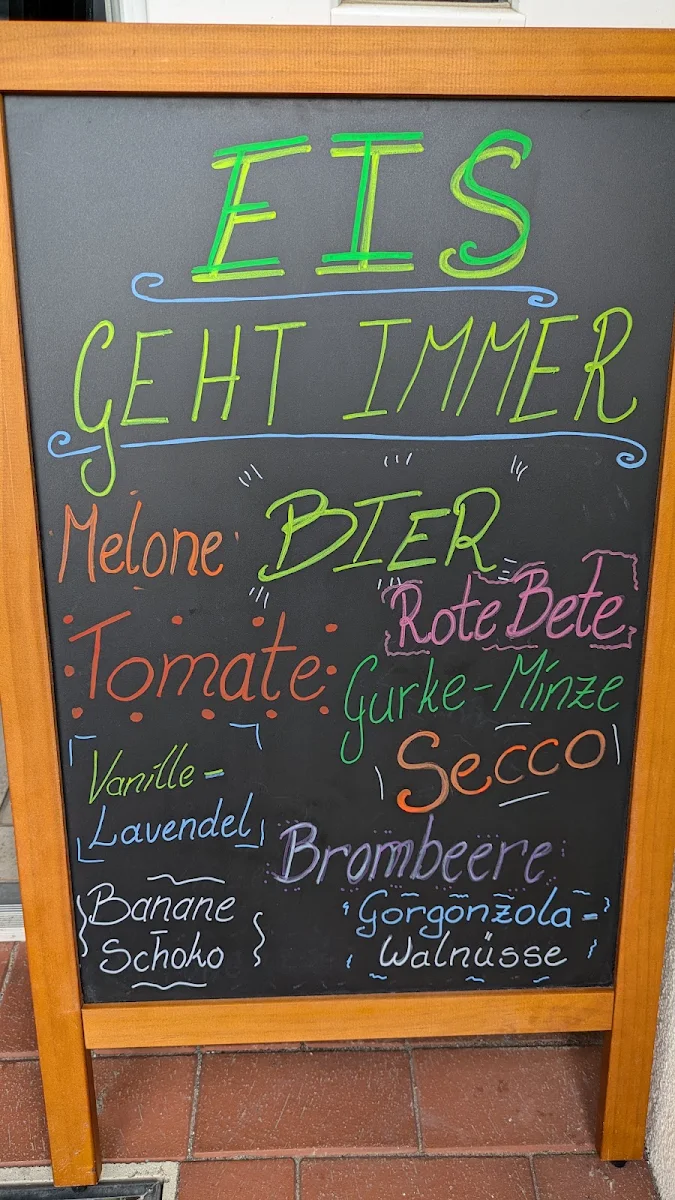 EIS
GEHT IMMER
Melone
BIER
Rote Bete
Tomate
Gurke-Minze
Secco
Vanille-
Lavendel
Brombeere
Banane
Schoko
Gorgonzola-
Walnüsse